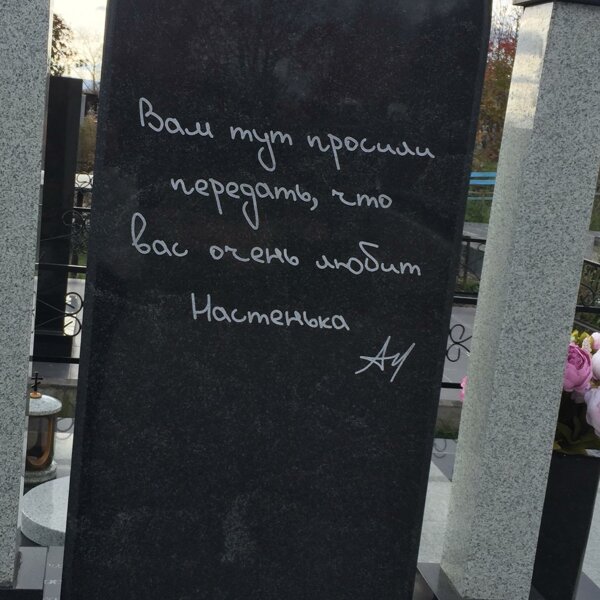 Вам тут просили
передать, что
вас очень любит
Настенька